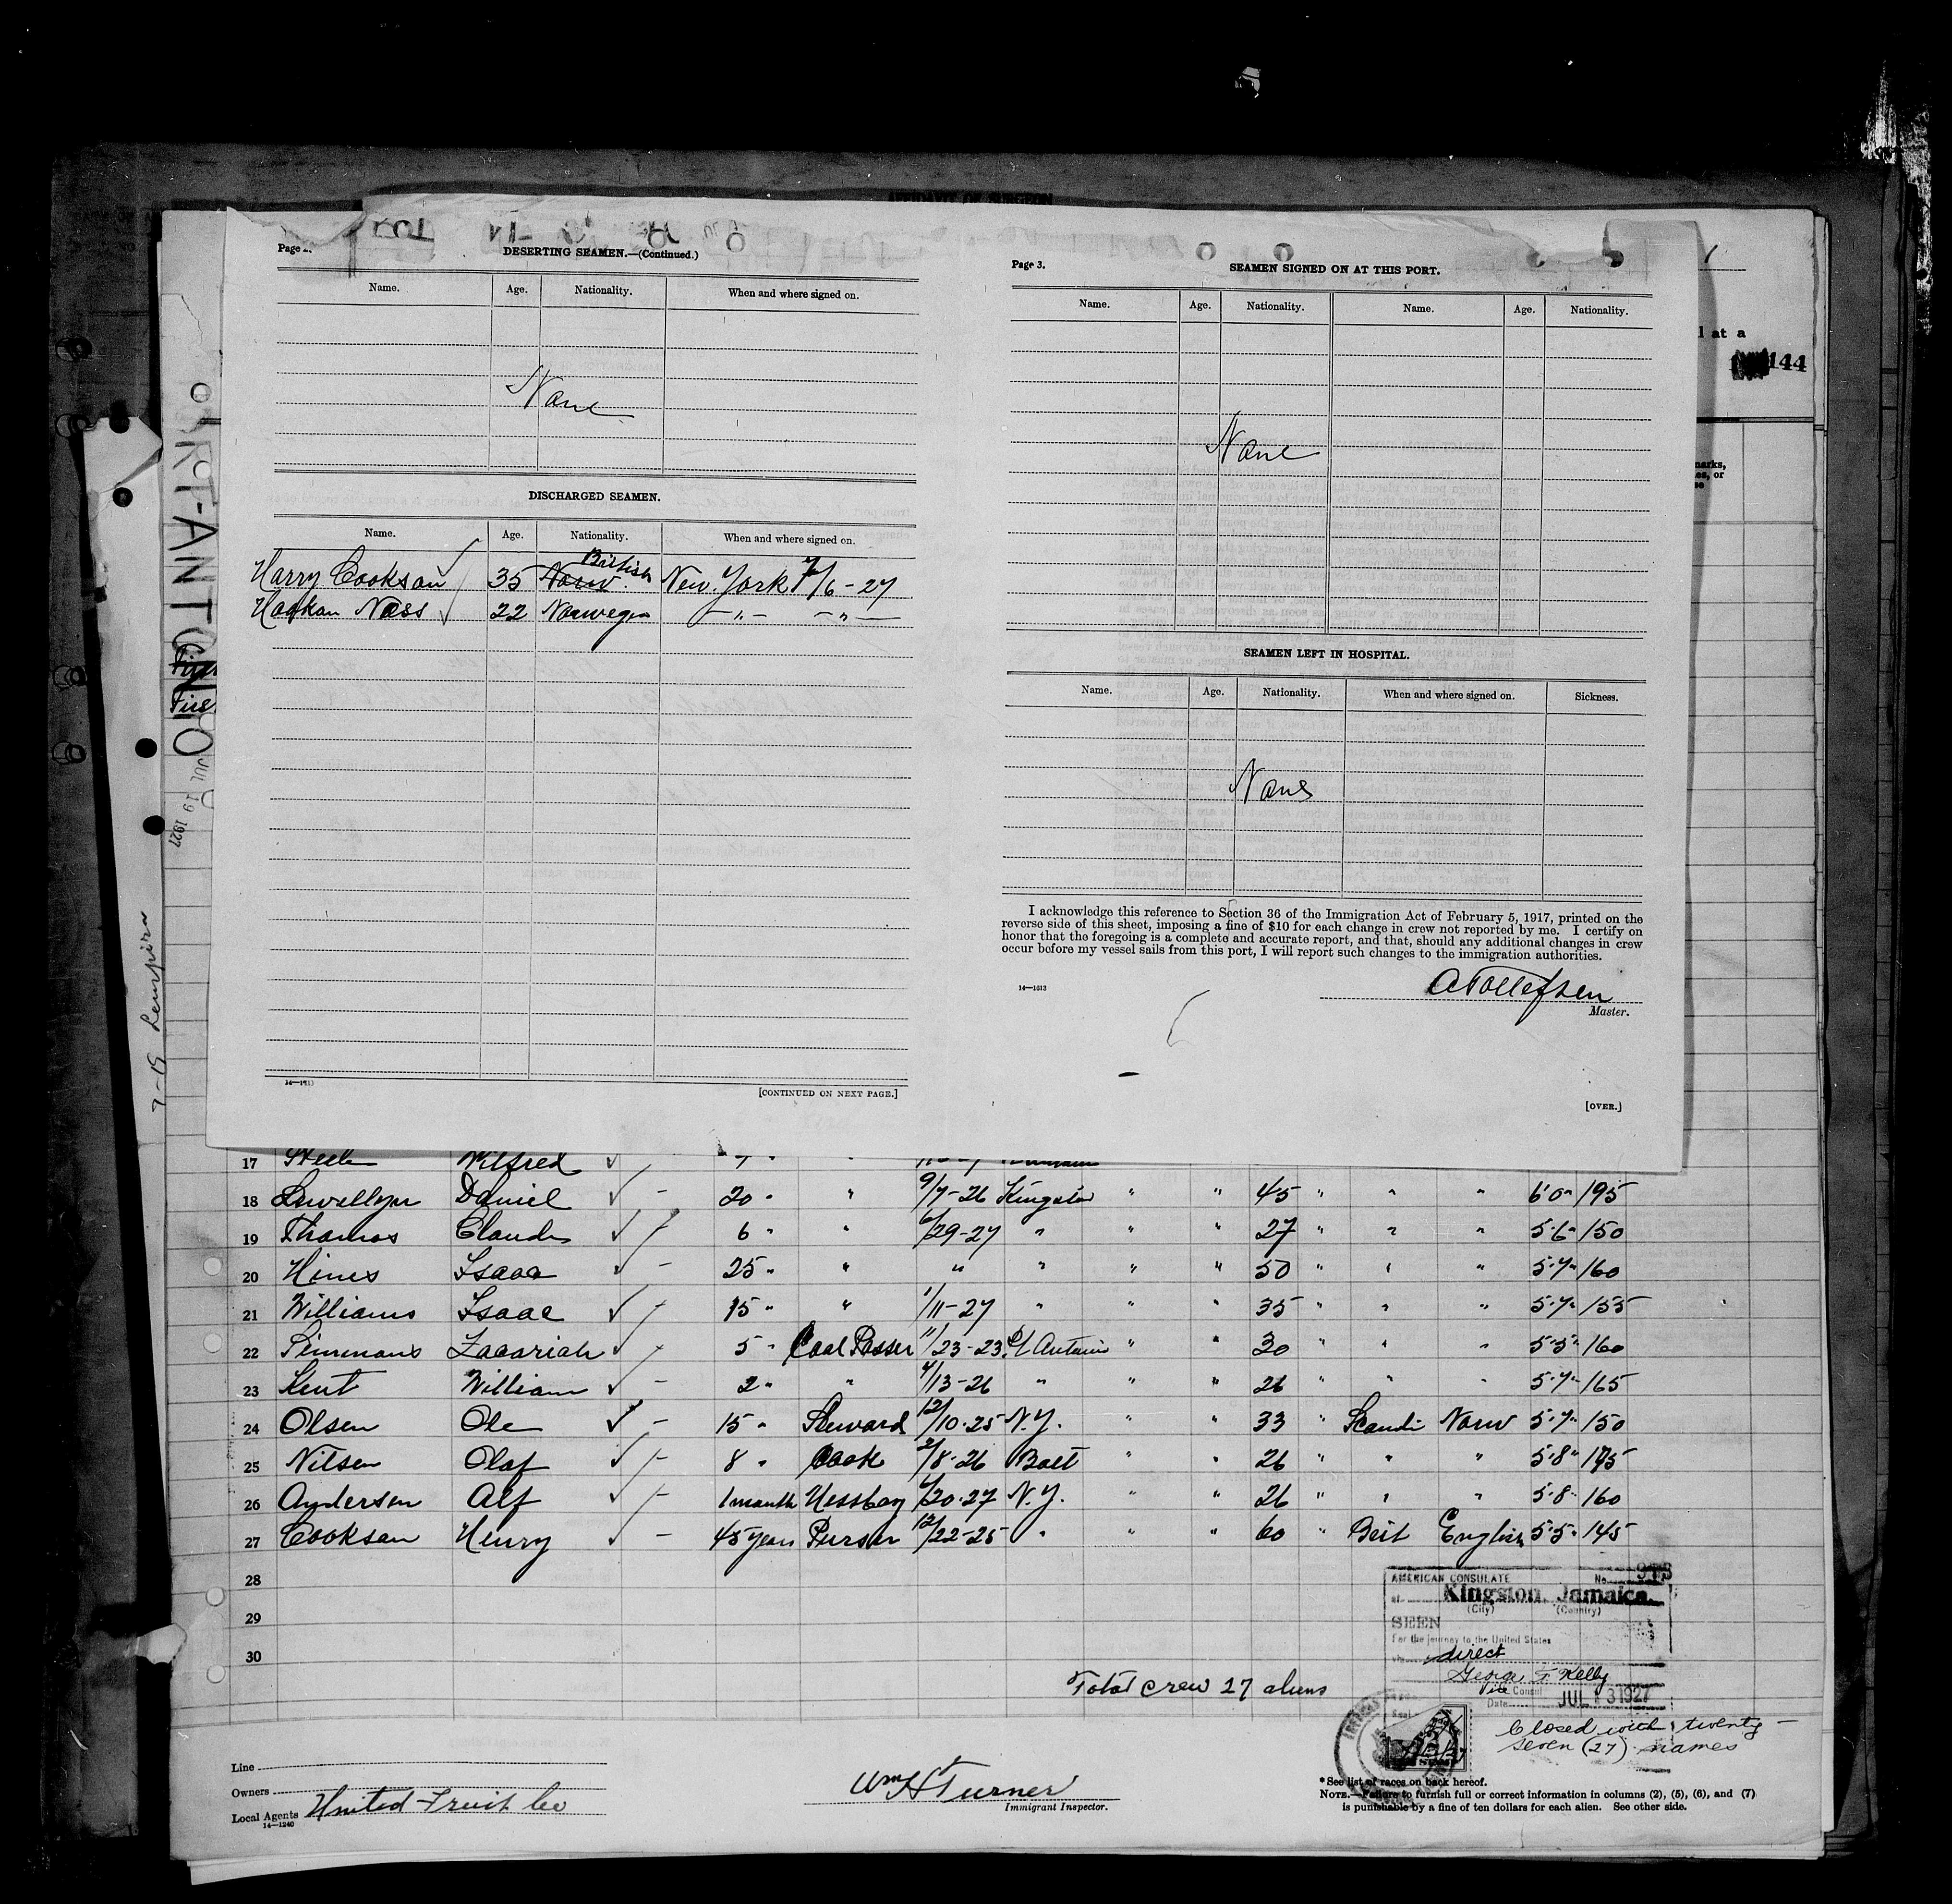 AFFIDAVIT OF SURGEON
Page 2.
DESERTING SEAMEN.—(Continued.)
Name. Age. Nationality. When and where signed on.
None
DISCHARGED SEAMEN.
Name. Age. Nationality. When and where signed on.
British
Harry Cookson 35 Norw. New York 7/6-27
Haakon Næss 22 Norwegn —"— —"—
14—1313
[CONTINUED ON NEXT PAGE.]
Page 3.
SEAMEN SIGNED ON AT THIS PORT.
Name. Age. Nationality. Name. Age. Nationality.
None
SEAMEN LEFT IN HOSPITAL.
Name. Age. Nationality. When and where signed on. Sickness.
None
I acknowledge this reference to Section 36 of the Immigration Act of February 5, 1917, printed on the
reverse side of this sheet, imposing a fine of $10 for each change in crew not reported by me. I certify on
honor that the foregoing is a complete and accurate report, and that, should any additional changes in crew
occur before my vessel sails from this port, I will report such changes to the immigration authorities.
14—1313
A Tollefsen
Master.
[OVER.]
l at a
144
marks,
es, or
se
PORT ANTONIO
JUL 19 1927
Fire
7-19 Lempira
17 Steele Wilfred
18 Lewellyn Daniel 20 " " 9/7-26 Kingston " " 45 " " " 6'0" 195
19 Thomas Claude 6 " " 6/29-27 " " " 27 " " " 5·6" 150
20 Hines Isaac 25 " " " " " " 50 " " " 5·7" 160
21 Williams Isaac 15 " " 1/11-27 " " " 35 " " " 5·7" 155
22 Simmons Zacariah 5 " Coal Passer 11/23-23 Pt Antonio " " 30 " " " 5·5" 160
23 Kent William 2 " " 4/13-26 " " " 26 " " " 5·7" 165
24 Olsen Ole 15 " Steward 12/10·25 N.Y. " " 33 " Scandi Norw 5·7" 150
25 Nilsen Olaf 8 " Cook 2/8·26 Balt " " 26 " " " 5·8" 175
26 Andersen Alf 1 month Messboy 6/20·27 N.Y. " " 26 " " " 5·8 160
27 Cookson Henry 45 years Purser 12/22-25 " " " 60 " Brit English 5·5" 145
28
29
30
Total crew 27 aliens
AMERICAN CONSULATE No. 973
at Kingston, Jamaica.
(City) (Country)
SEEN
For the journey to the United States
via direct
George F. Kelly
Vice Consul
Date JUL 13 1927
Closed with twenty-
seven (27) names
Line
Owners
Local Agents United Fruit Co
14—1240
Wm H Turner
Immigrant Inspector.
* See list of races on back hereof.
NOTE.—Failure to furnish full or correct information in columns (2), (5), (6), and (7)
is punishable by a fine of ten dollars for each alien. See other side.